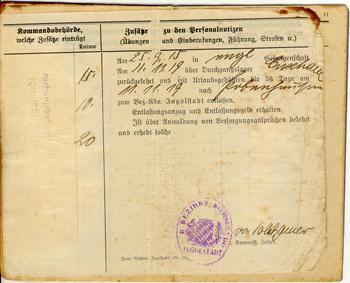 11
Kommandobehörde,
welche Zusätze einträgt
Datum
Zusätze zu den Personalnotizen
(Übungen und Einberufungen, Führung, Strafen u.)
Am 28.9.18 in engl. Gefangenschaft
Am 11.11.19 über Durchgangslager
zurückgekehrt und mit Urlaubsgebühren für 56 Tage am
11.11.19 nach
zum Bez.-Kdo. Ingolstadt entlassen.
Entlassungsanzug und Entlassungsgeld erhalten.
Ist über Anmeldung von Versorgungsansprüchen belehrt
und erhebt solche
15.
10.
20
BEZIRKS-KOMMANDO
INGOLSTADT